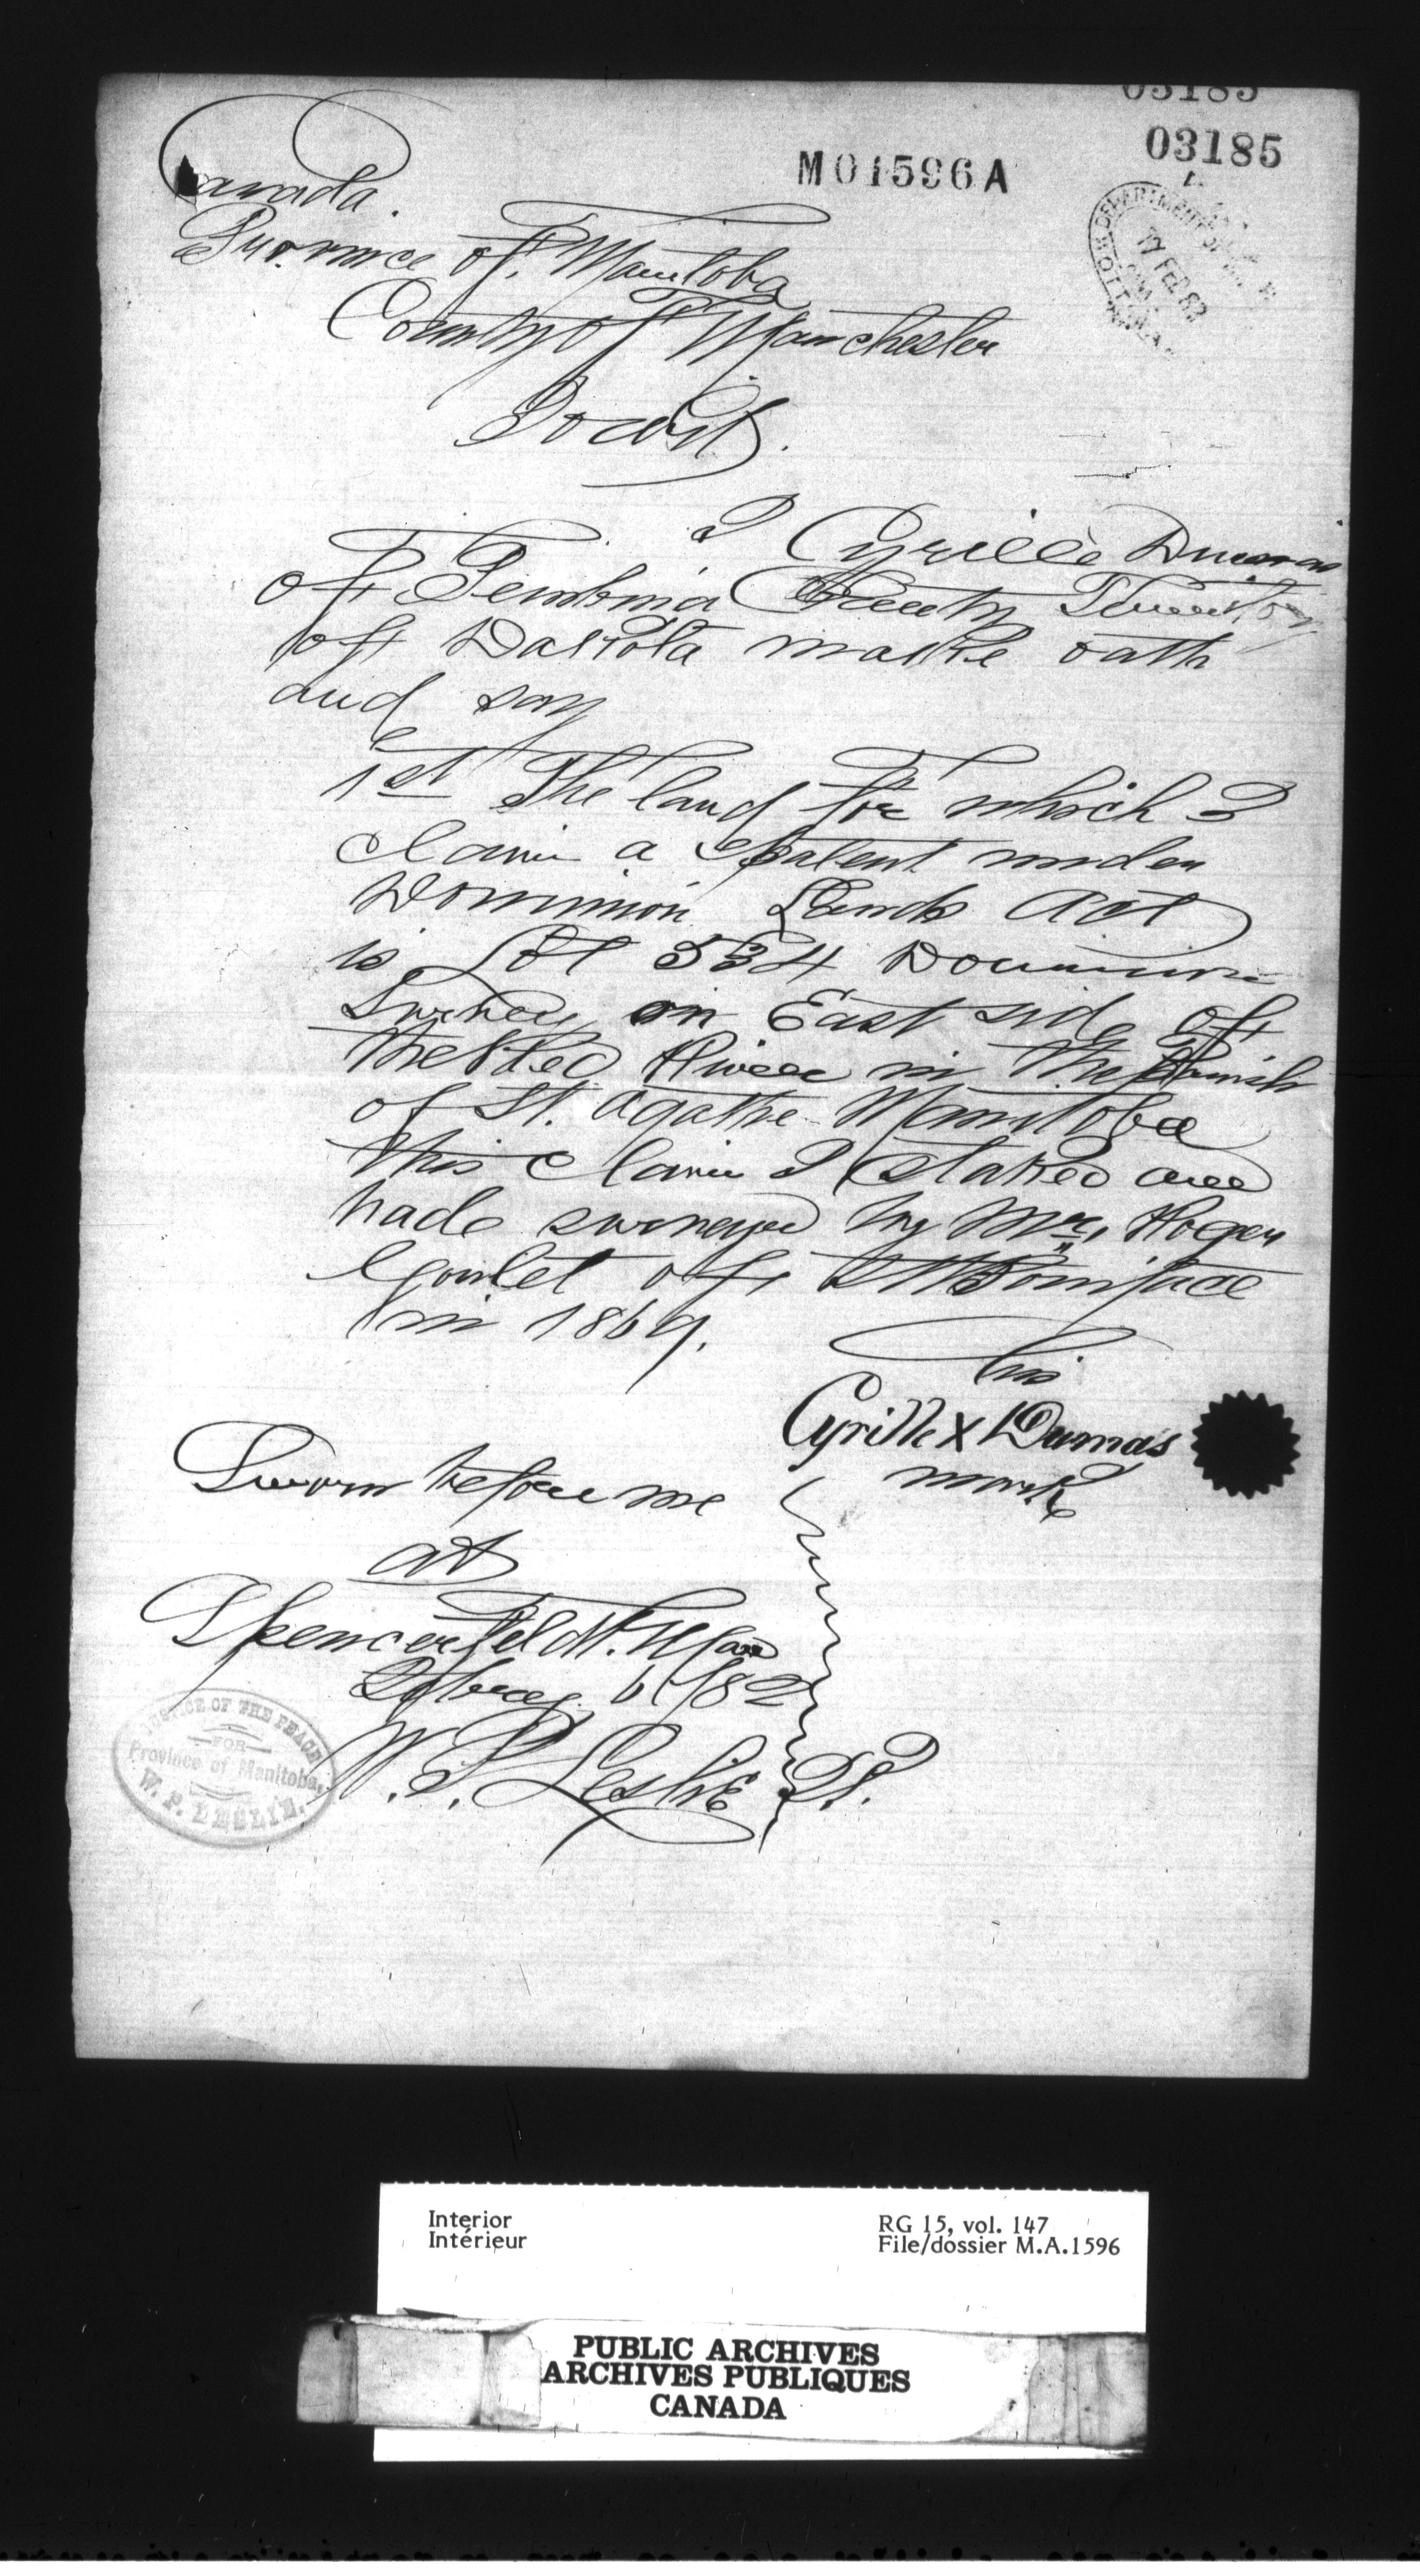 03185
03185
M01596A
DEPARTMENT OF
17 FEB 82
Canada.
Province of Manitoba
County of Manchester
To wit.
I Cyrille Dumas
of Pembina County Territory
of Dakota make oath
and say
1st The land for which I
claim a patent under
Dominion Lands Act
is Lot 534 Dominion
Survey on East side of
the Red River in the Parish
of St. Agathe Manitoba
this claim I staked and
had surveyed by Mr. Roger
Goulet of St Boniface
in 1869.
his
Cyrille X Dumas
mark
Sworn before me
at
Spencerfeldt. Man
6 1882
W. P. Leslie J.P.
JUSTICE OF THE PEACE
FOR
Province of Manitoba,
W. P. LESLIE.
Interior
Intérieur
RG 15, vol. 147
File/dossier M.A.1596
PUBLIC ARCHIVES
ARCHIVES PUBLIQUES
CANADA